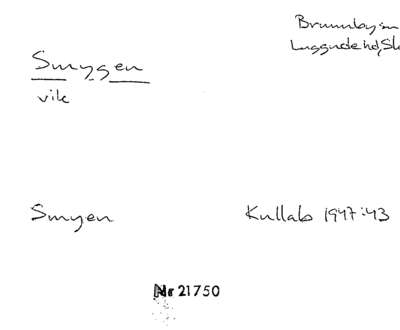 Brunnby sn
Luggude hd, Sk
Smygen
vik
Smyen Kullab 1947:43
Nr 21750